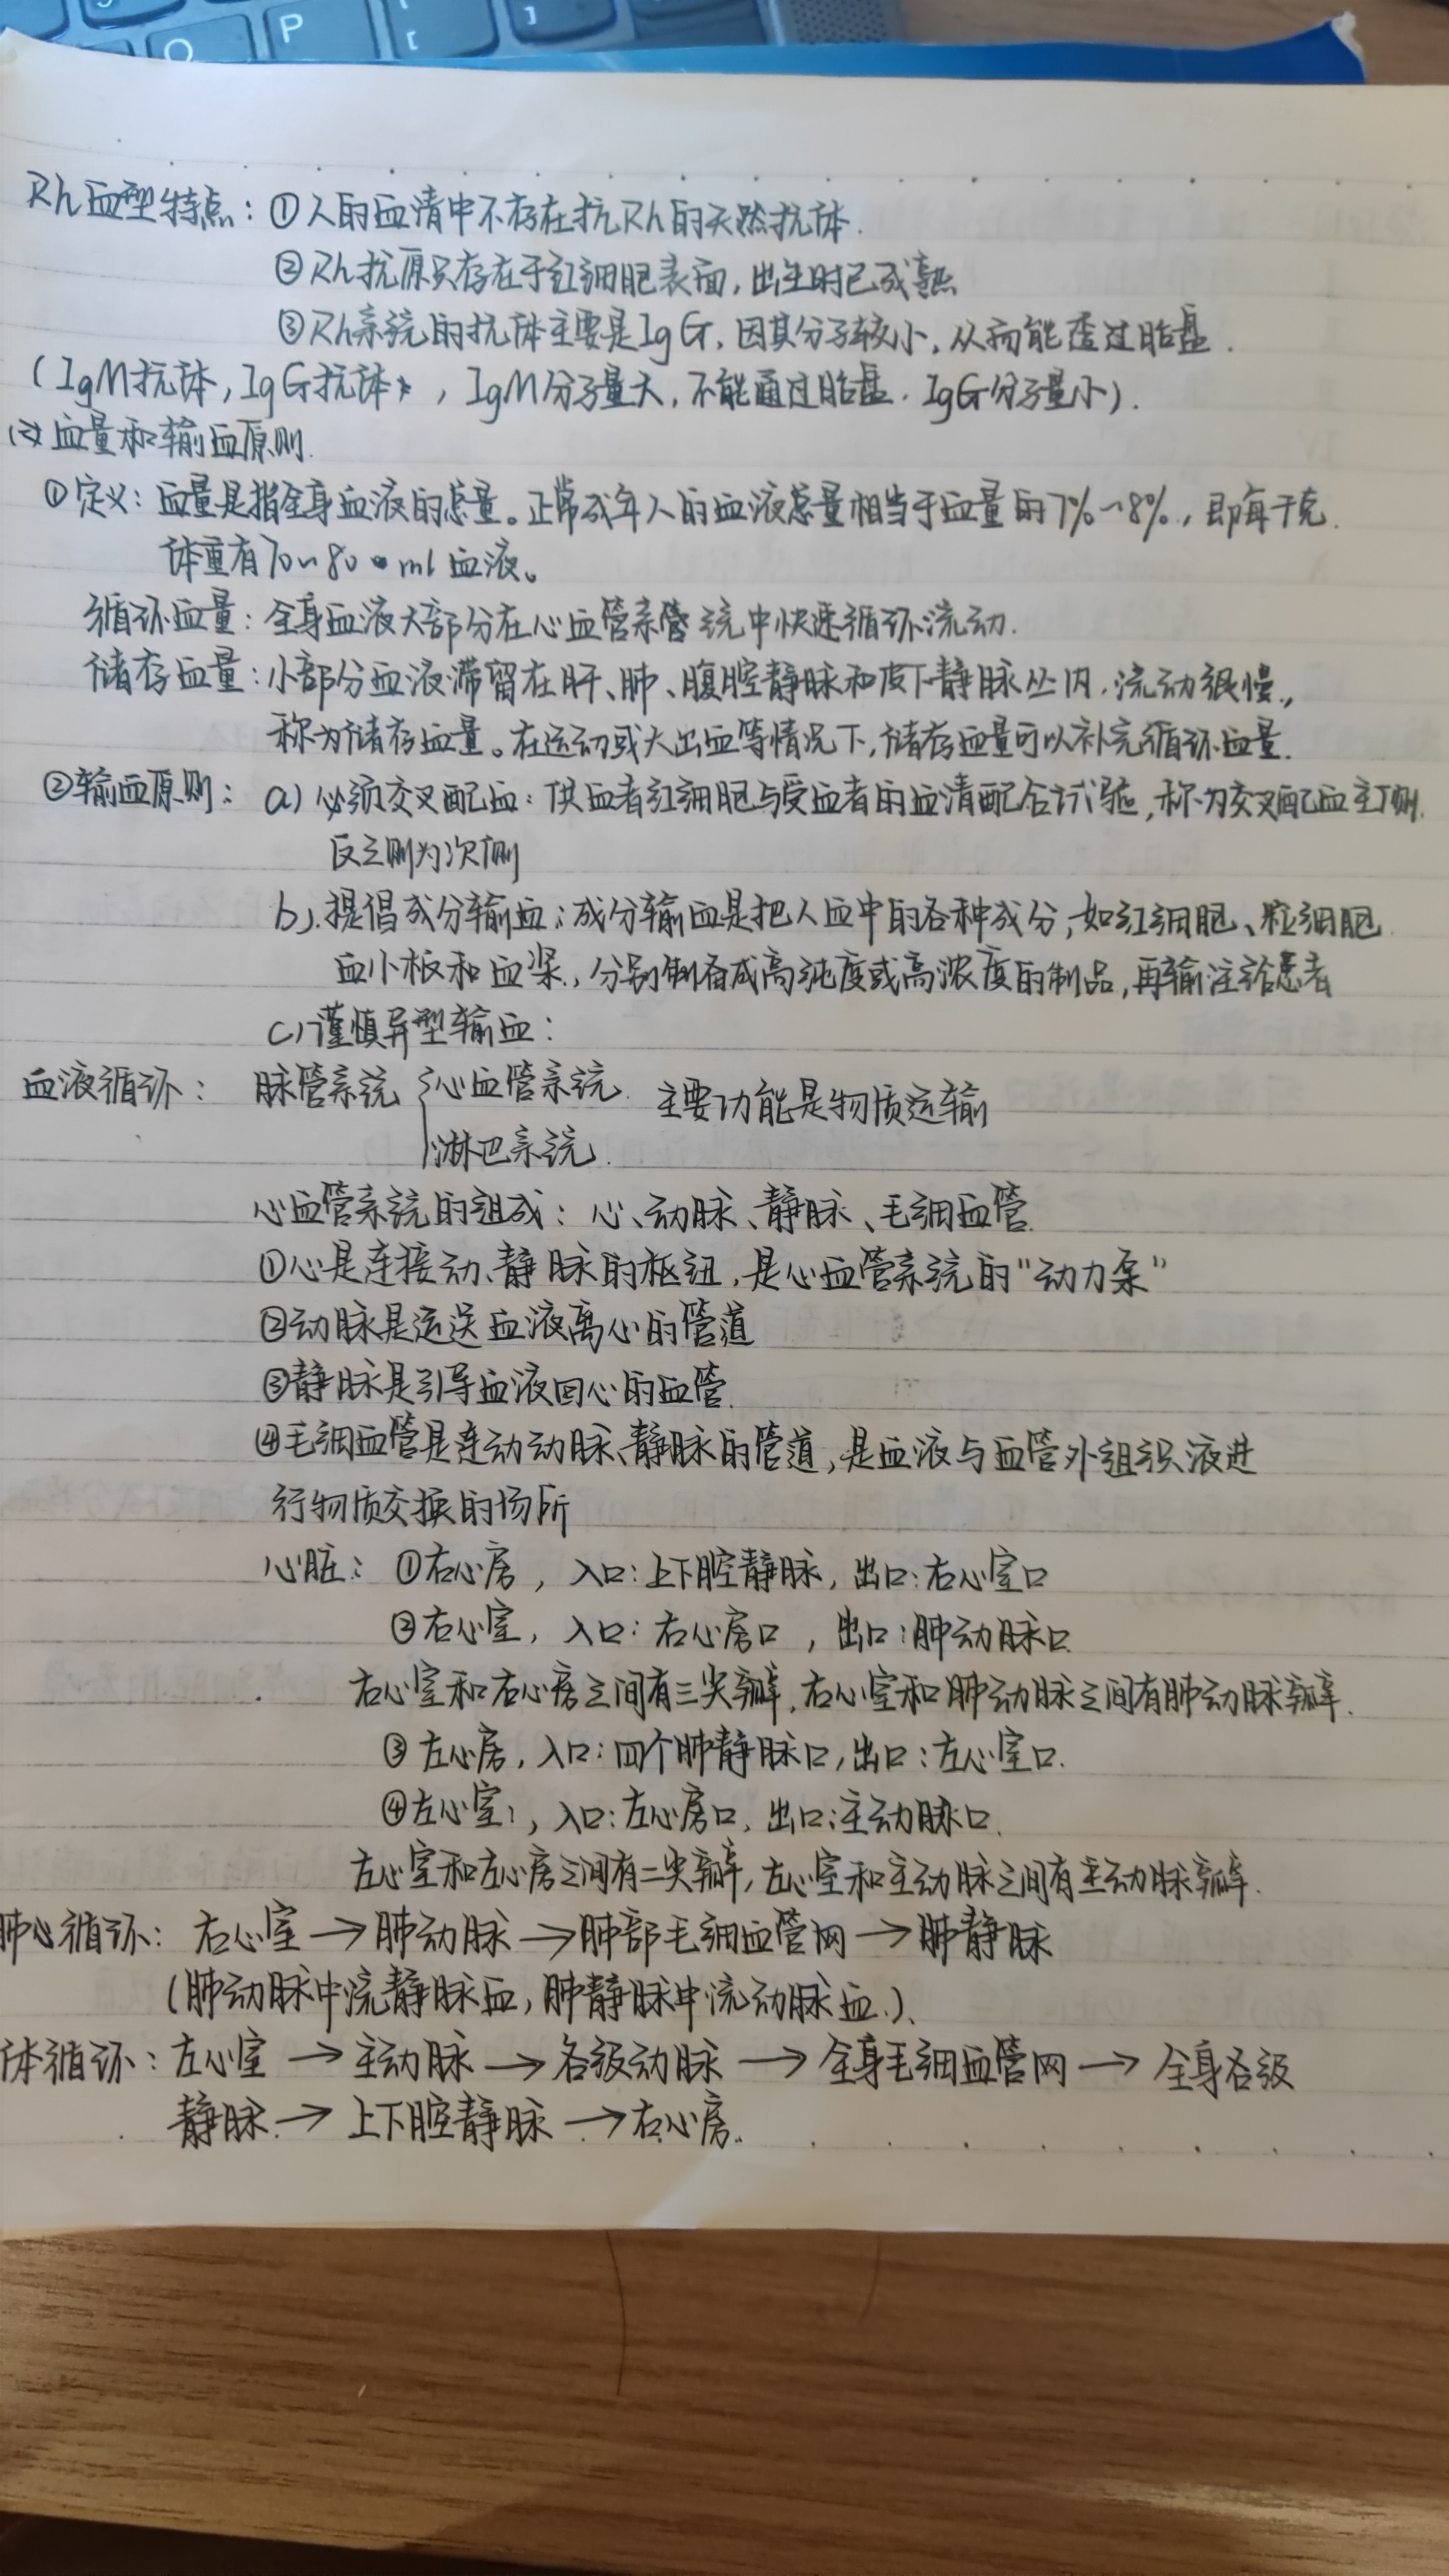 P
[
]
Rh血型特点：①人的血清中不存在抗Rh的天然抗体.
②Rh抗原只存在于红细胞表面，出生时已成熟
③Rh系统的抗体主要是IgG，因其分子较小，从而能透过胎盘.
（IgM抗体，IgG抗体，IgM分子量大，不能通过胎盘.IgG分子量小）.
血量和输血原则.
①定义：血量是指全身血液的总量。正常成年人的血液总量相当于血量的7%~8%，即每千克
体重有70~80ml血液。
循环血量：全身血液大部分在心血管系统中快速循环流动.
储存血量：小部分血液滞留在肝、肺、腹腔静脉和皮下静脉丛内，流动很慢，
称为储存血量。在运动或大出血等情况下，储存血量可以补充循环血量.
②输血原则：a）必须交叉配血：供血者红细胞与受血者的血清配合试验，称为交叉配血主侧.
反之则为次侧
b）.提倡成分输血：成分输血是把人血中的各种成分，如红细胞、粒细胞
血小板和血浆，分别制备成高纯度或高浓度的制品，再输注给患者
c）谨慎异型输血：
血液循环： 脉管系统 { 心血管系统. 主要功能是物质运输
淋巴系统.
心血管系统的组成：心、动脉、静脉、毛细血管.
①心是连接动、静脉的枢纽，是心血管系统的“动力泵”
②动脉是运送血液离心的管道
③静脉是引导血液回心的血管.
④毛细血管是连动动脉、静脉的管道，是血液与血管外组织液进
行物质交换的场所
心脏：①右心房，入口：上下腔静脉，出口：右心室口
②右心室，入口：右心房口，出口：肺动脉口
右心室和右心房之间有三尖瓣，右心室和肺动脉之间有肺动脉瓣.
③左心房，入口：四个肺静脉口，出口：左心室口.
④左心室，入口：左心房口，出口：主动脉口.
左心室和左心房之间有二尖瓣，左心室和主动脉之间有主动脉瓣.
肺心循环：右心室→肺动脉→肺部毛细血管网→肺静脉
（肺动脉中流静脉血，肺静脉中流动脉血.）.
体循环：左心室→主动脉→各级动脉→全身毛细血管网→全身各级
静脉→上下腔静脉→右心房.